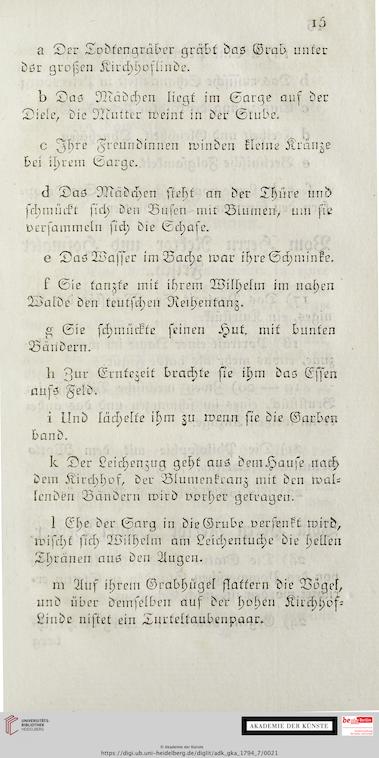 15
a Der Todtengräber gräbt das Grab unter
der großen Kirchhoflinde.
b Das Mädchen liegt im Sarge auf der
Diele, die Mutter weint in der Stube.
c Ihre Freundinnen winden kleine Kränze
bei ihrem Sarge.
d Das Mädchen steht an der Thüre und
schmückt sich den Busen mit Blumen, um sie
versammeln sich die Schafe.
e Das Wasser im Bache war ihre Schminke.
f Sie tanzte mit ihrem Wilhelm im nahen
Walde den teutschen Reihentanz.
g Sie schmückte seinen Hut, mit bunten
Bändern.
h Zur Erntezeit brachte sie ihm das Essen
aufs Feld.
i Und lächelte ihm zu wenn sie die Garben
band.
k Der Leichenzug geht aus dem Hause nach
dem Kirchhof, der Blumenkranz mit den wal-
lenden Bändern wird vorher getragen.
l Ehe der Sarg in die Grube versenkt wird,
wischt sich Wilhelm am Leichentuche die hellen
Thränen aus den Augen.
m Auf ihrem Grabhügel flattern die Vögel,
und über demselben auf der hohen Kirchhof-
Linde nistet ein Turteltaubenpaar.
UNIVERSITÄTS-
BIBLIOTHEK
HEIDELBERG
AKADEMIE DER KÜNSTE
© Akademie der Künste
https://digi.ub.uni-heidelberg.de/diglit/adk_gka_1794_7/0021